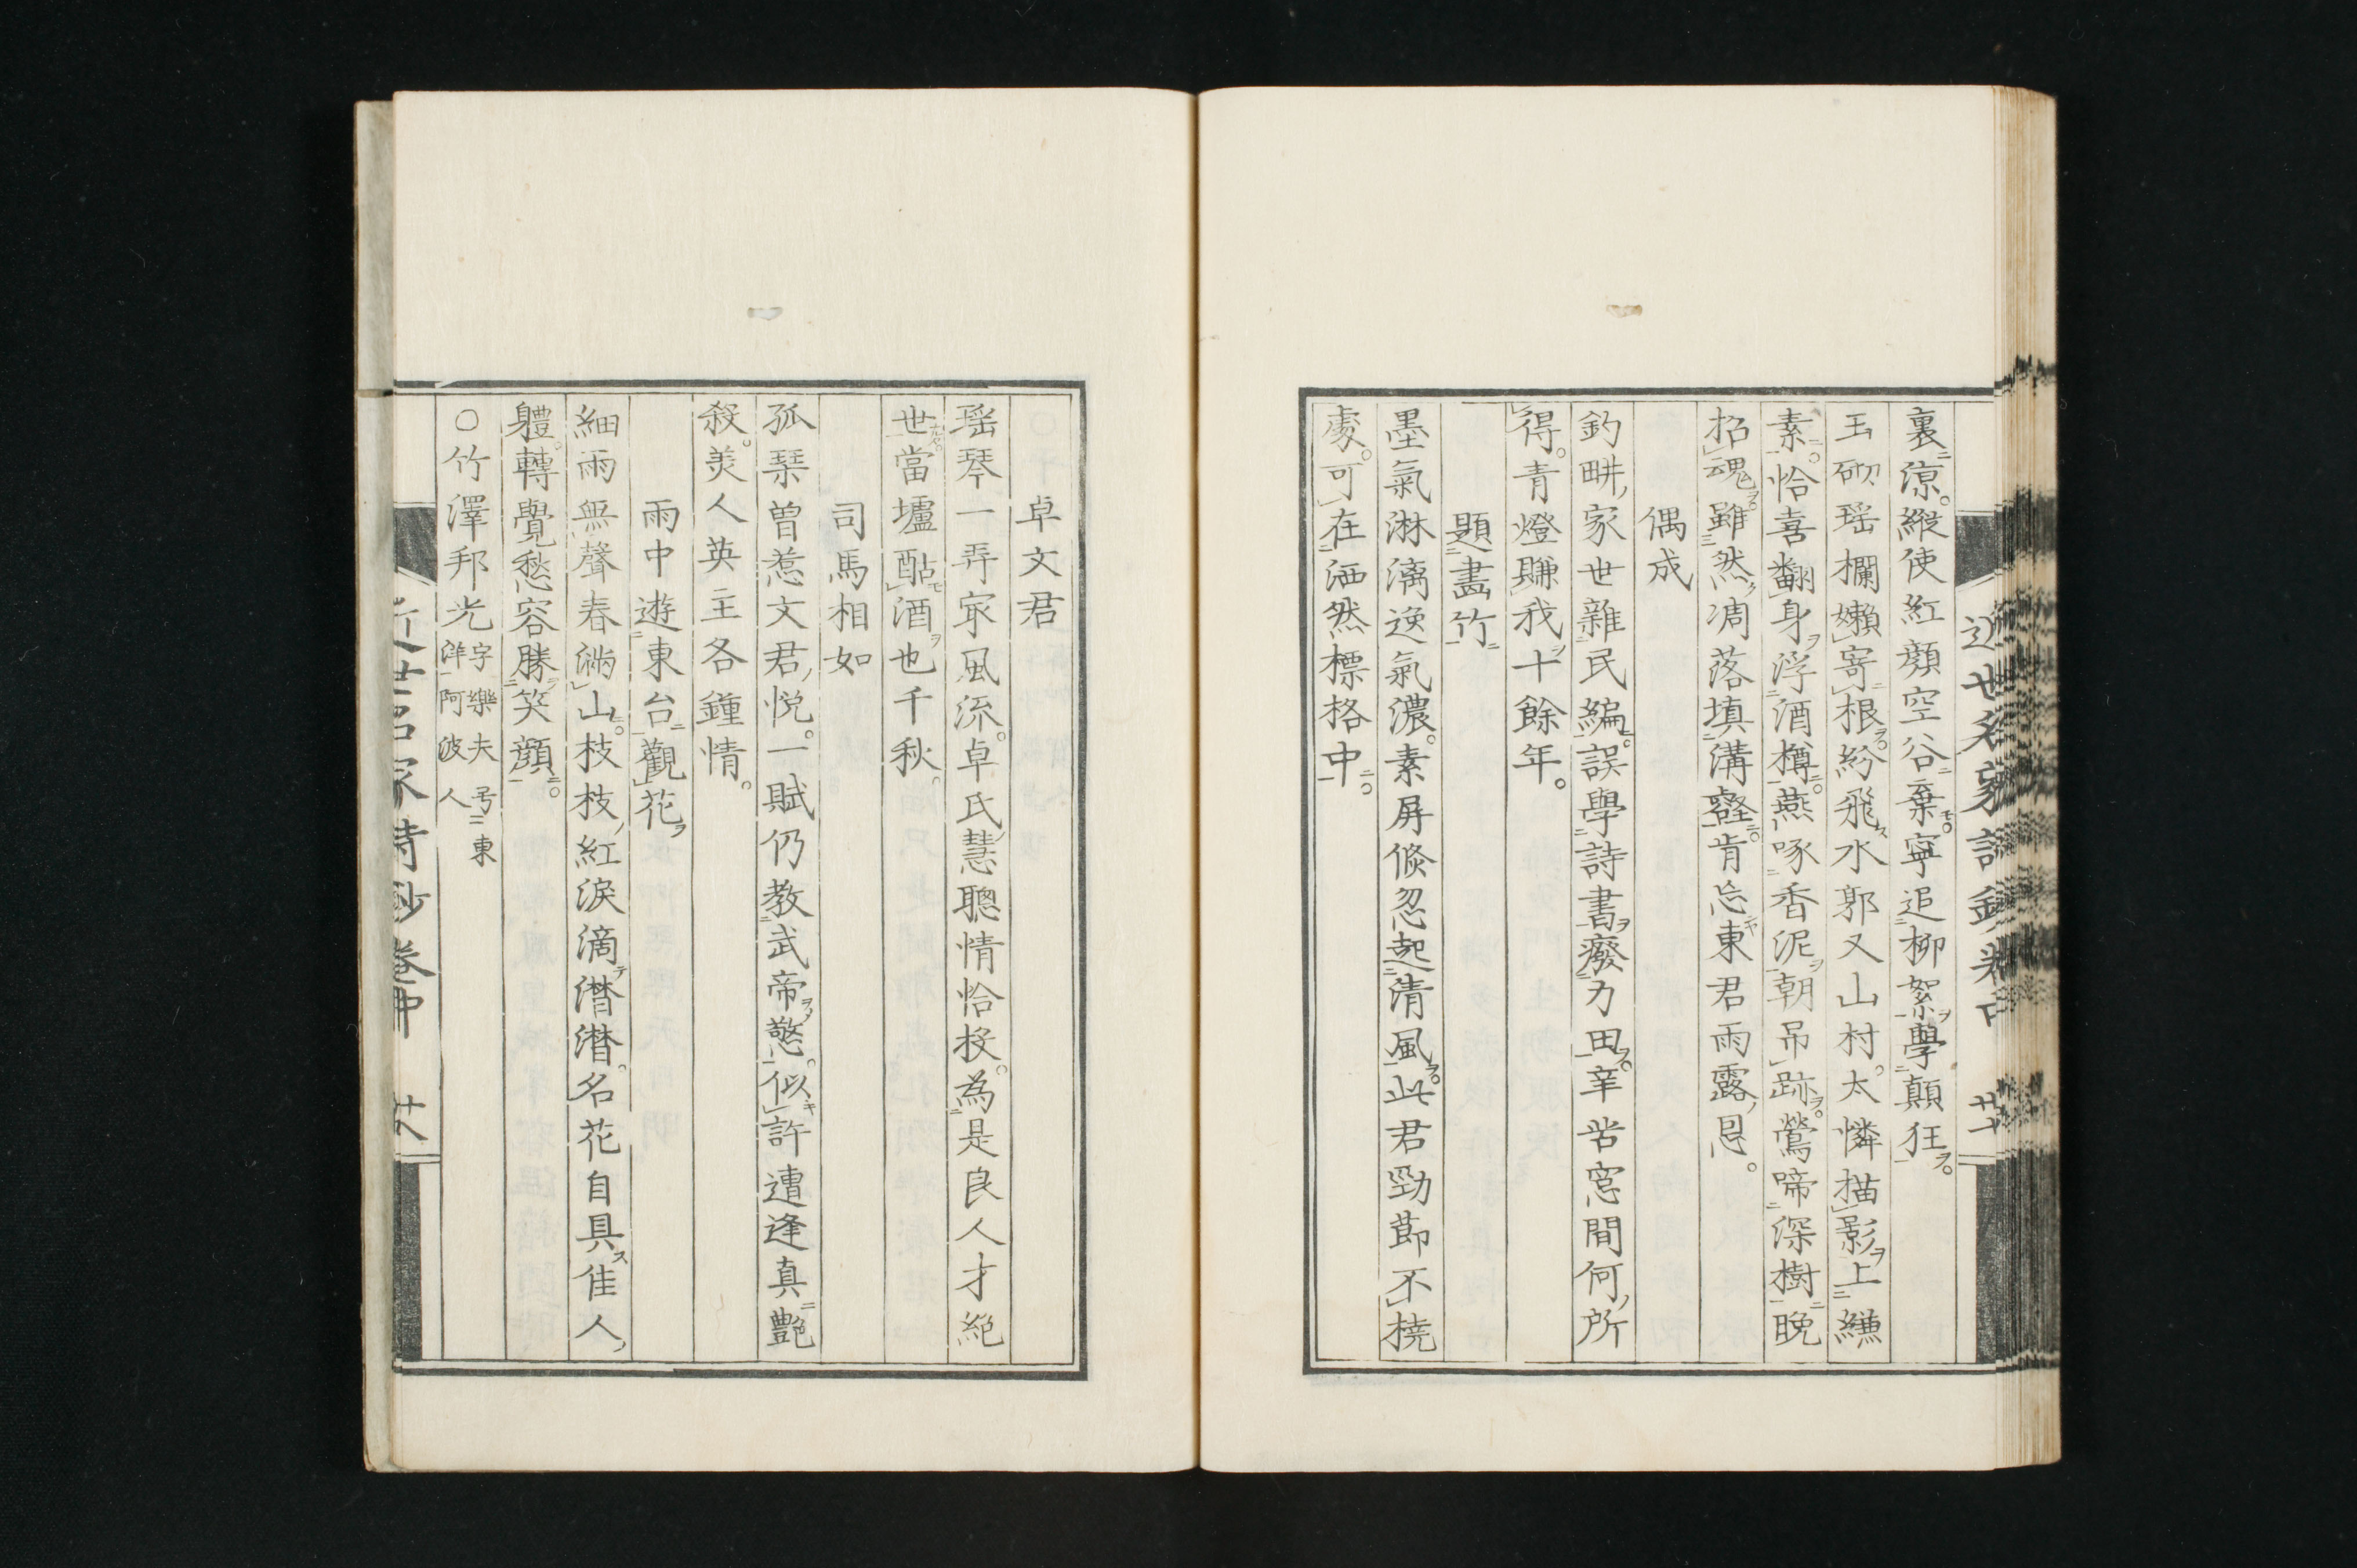 裏凉縱使紅顔空谷棄寧追柳絮學顛狂
玉砌瑶欄嬾寄根紛飛水郭又山村太憐描影上縑
素恰喜翻身浮酒樽燕啄香泥朝吊跡鶯啼深樹晩
招魂雖然凋落填溝壑肯忘東君雨露恩
偶成
釣畊家世雜民編誤學詩書癈力田辛苦窓間何所
得青燈賺我十餘年
題畫竹
墨氣淋漓逸氣濃素屏倐忽起清風此君勁節不撓
處可在洒然標格中
卓文君
瑶琴一弄㝡風流卓氏慧聰情恰挍為是良人才絶
世當壚酤酒也千秋
司馬相如
孤琹曽惹文君悦一賦仍教武帝憗似許遭逢真艶
殺美人英主各鍾情
雨中遊東台觀花
細雨無聲春滿山枝枝紅淚滴潸潸名花自具佳人
軆轉覺愁容勝笑顔
〇竹澤邦光字樂夫号東洋阿波人
近世名家詩鈔卷中 廿八